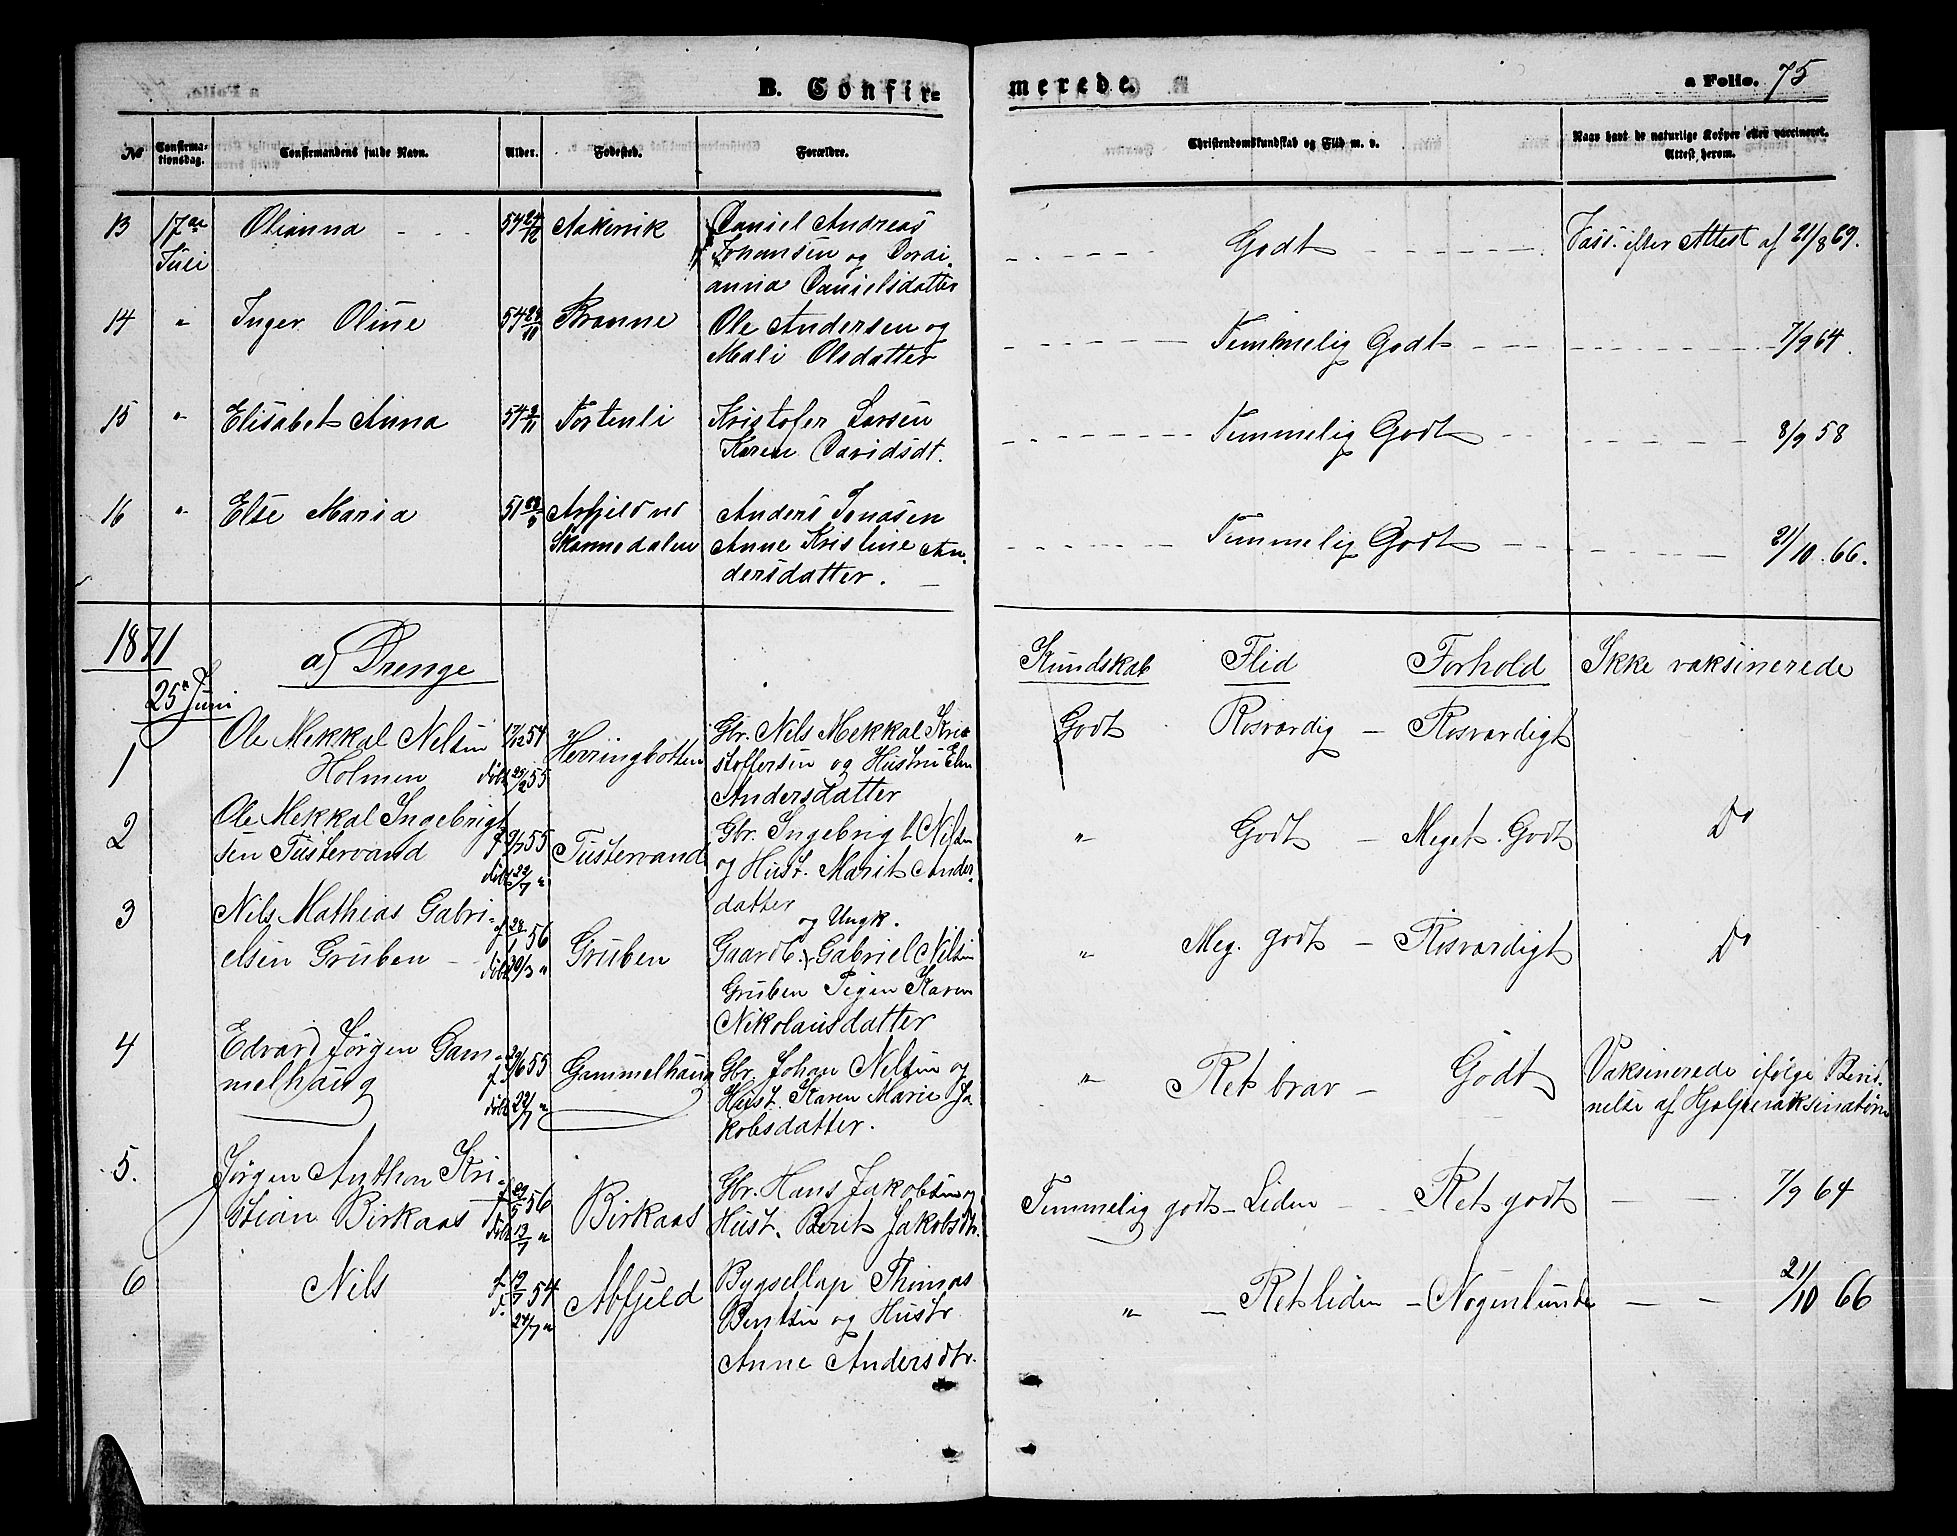 B. Confir=
merede.
a Folio. 75
No
Confirma-
tionsdag.
Confirmandens fulde Navn.
Alder.
Fødested.
Forældre.
Christendomskundskab og Flid m. v.
Naar havt de naturlige Kopper eller vaccineret.
Attest herom.
13 17de Olianna 54 Aakervik Daniel Andreas
Juli Johansen og
anna Danielsdatter
Godt Vacc. efter Attest af 21/8 69.
14 " Inger Oline 54 Brønne Ole Andersen og
Mali Olsdatter
Temmelig Godt 7/9 64.
15 " Elisabet Anna 54 Fortenli Kristofer Larsen
Karen Davidsdt.
Temmelig Godt 8/9 58
16 " Else Maria 51 Anders Jonasen
Anne Kristine An-
dersdatter.
Temmelig Godt 21/10 66.
1871
a) Drenge
Kundskab Flid Forhold Ikke vaksinerede
25de Juni
1 Ole Mekkal Nelsen 54 Herringbotten Gbr. Nels Mekkal Kri-
Holmen døbt 55 stoffersen og Hustru
Andersdatter
Godt Rosværdig – Rosværdigt
2 Ole Mekkal Ingebrigt
sen Tustervand f 9/7 55 Tustervand Gbr. Ingebrigt Nilsen
døbt 22/7 " og Hust. Marit Anders-
datter
" Godt – Meget Godt Do
3 Nils Mathias Gabri-
elsen Gruben f 56 Gruben og Ungk.
døbt 30/3 " Gaardb. Gabriel Nilsen
Gruben Pigen Karen
Nikolausdatter
" Meg. godt – Rosværdigt Do
4 Edvard Jørgen Gam-
melhaug f 55 Gammelhaug Gbr. Johan Nelsen og
døbt 22/7 " Hust. Karen Marie Ja-
kobsdatter.
" Ret brav – Godt Vaksinerede ifølge
af Hjelpevaksinatøren
5. Jørgen Anthon Kri-
stian Birkaas f 29/5 56 Birkaas Gbr. Hans Jakobsen og
døbt 13/7 " Hust. Berit Jakobsdtr.
Temmelig godt – Liden – Ret godt 7/9 64
6 Nils f. 54 Abfjeld Bygsellap Thomas
d. 24/7 " Bentsen og Hustr
Anne Andersdtr.
" – Ret liden – Nogenlunde 21/10 66